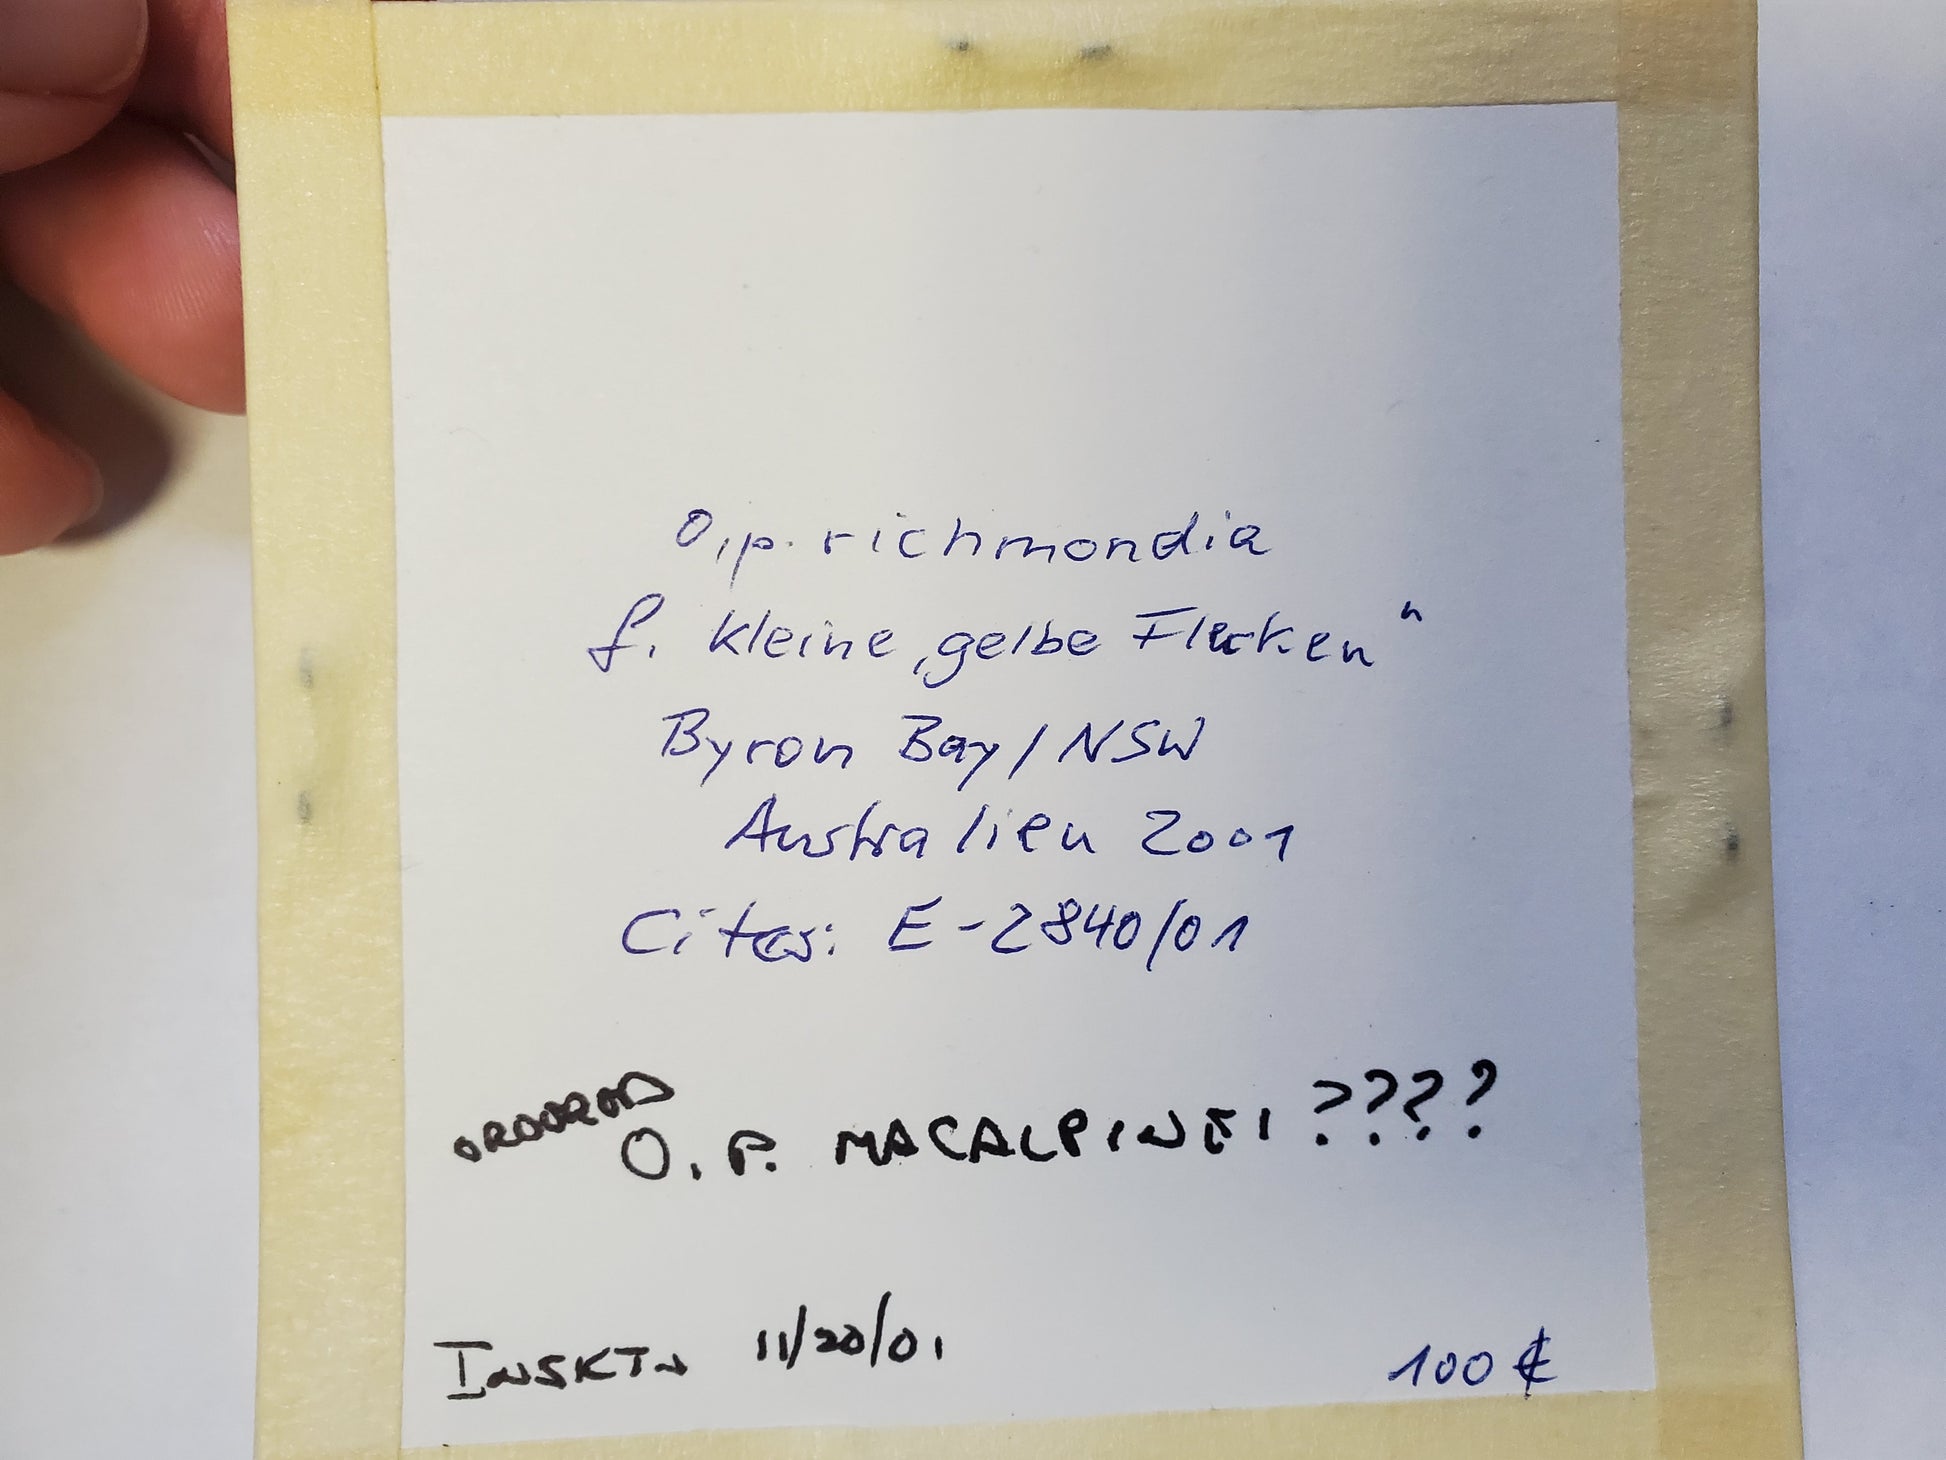 O.p. richmondia
f. kleine „gelbe Flecken“
Byron Bay / NSW
Australien 2001
Cites: E-2840/01
O. P. MACALPINEI ????
INSKTN 11/20/01
100 €